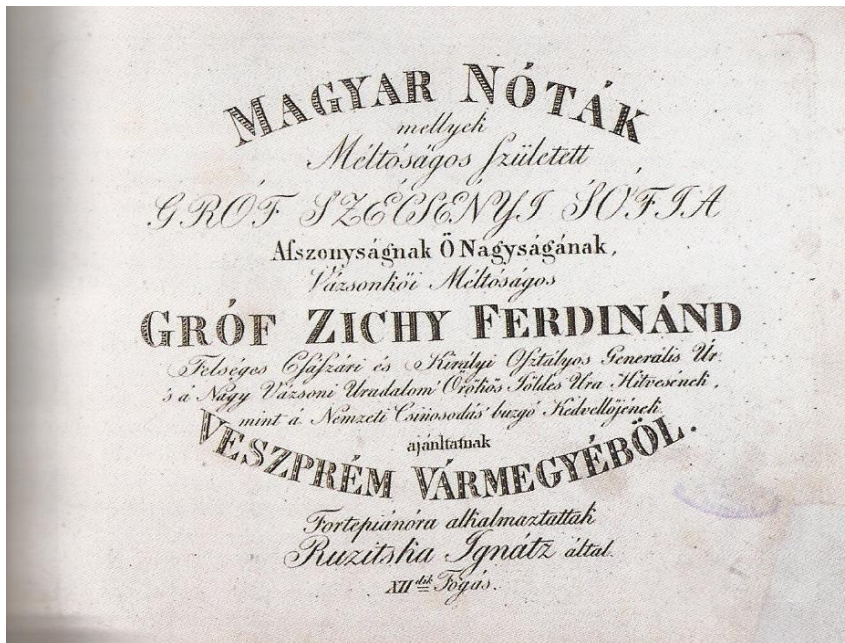 MAGYAR NÓTÁK
mellyek
Méltóságos született
GRÓF SZÉCSÉNYI SÓFIA
Aſszonyságnak Ő Nagyságának,
Vázsonkői Méltóságos
GRÓF ZICHY FERDINÁND
Felséges Cſáſzári és Királyi Oſztályos Generális Úr
's á Nagy Vázsoni Uradalom' Örökös Földes Ura Hitvesének,
mint á Nemzeti Csinosodás' buzgó Kedvellőjének
ajánltatnak
VESZPRÉM VÁRMEGYÉBŐL.
Fortepiánóra alkalmaztattak
Ruzitska Ignátz által.
XII dik Fogás.